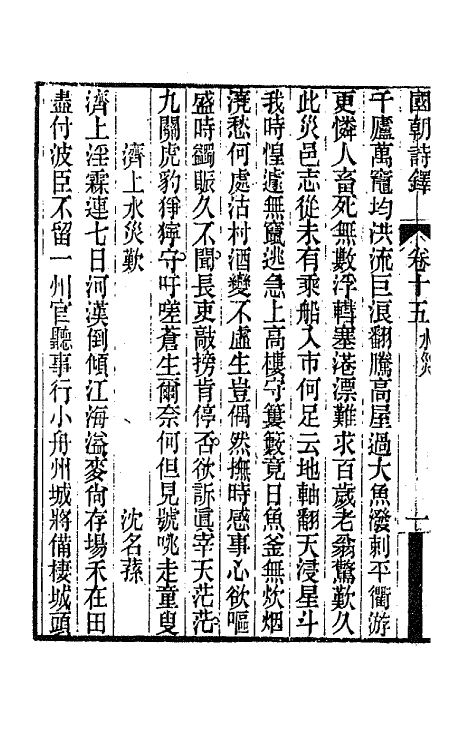 國朝詩鐸 卷十五 水災 一
千廬萬竈均洪流巨浪翻騰高屋過大魚潑剌平衢游
更憐人畜死無數浮轉塞港漂難求百歲老翁驚歎久
此災邑志從未有乘船入市何足云地軸翻天浸星斗
我時惶遽無竄逃急上高樓守簍簌竟日魚釜無炊烟
澆愁何處沽村酒變不虛生豈偶然撫時感事心欲嘔
盛時蠲賑久不聞長吏敲搒肯停否欲訴眞宰天茫茫
九關虎豹猙獰守吁嗟蒼生爾奈何但見號咷走童叟
濟上水災歎 沈名蓀
濟上淫霖連七日河漢倒傾江海溢麥尙存場禾在田
盡付波臣不留一州官聽事行小舟州城將備棲城頭